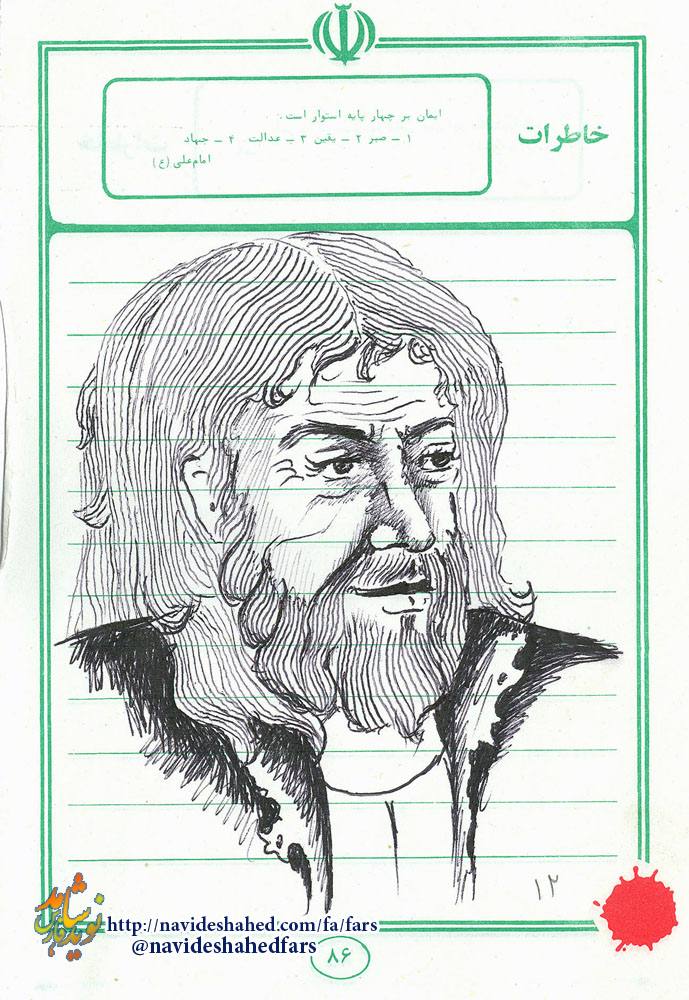 خاطرات
ایمان بر چهار پایه استوار است.
۱ ــ صبر ۲ ــ یقین ۳ ــ عدالت ۴ ــ جهاد
امام‌علی (ع)
۱۲
نوید شاهد
فارس
http://navideshahed.com/fa/fars
@navideshahedfars
۸۶